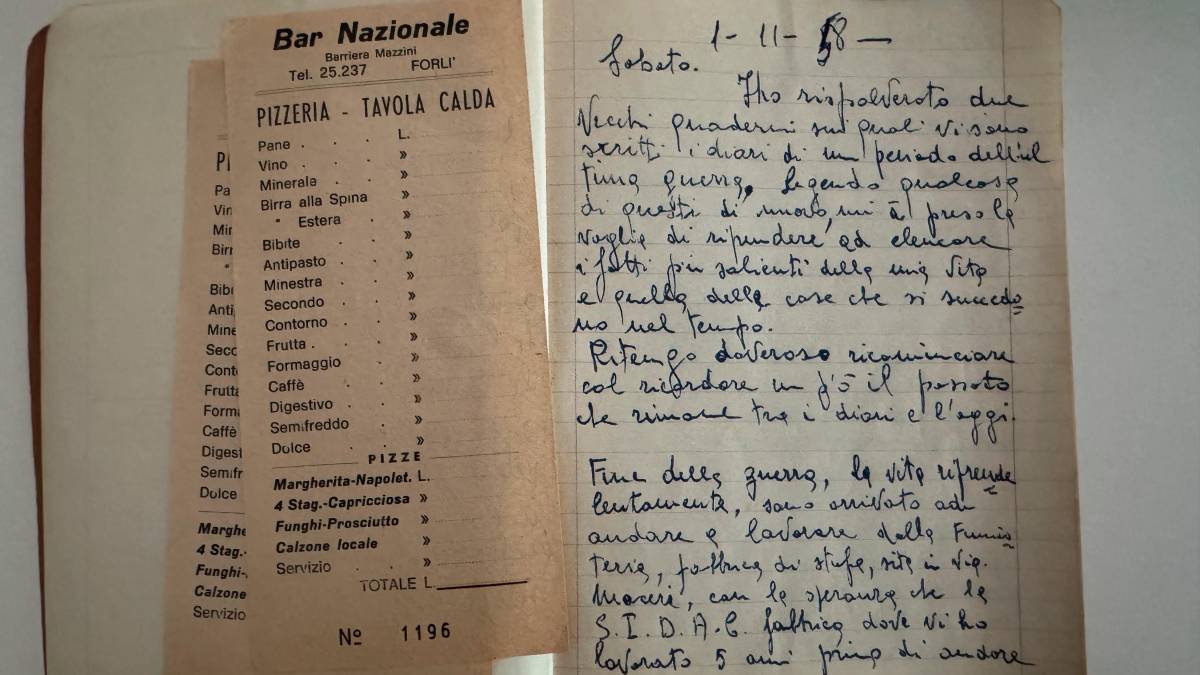 Bar Nazionale
Barriera Mazzini
Tel. 25.237 FORLI'
PIZZERIA - TAVOLA CALDA
L.
Pane . . . »
Vino . . . »
Minerale . . »
Birra alla Spina »
" Estera . »
Bibite . . »
Antipasto . . »
Minestra . . »
Secondo . . »
Contorno . . »
Frutta . . . »
Formaggio . »
Caffè . . »
Digestivo . . »
Semifreddo . »
Dolce . . »
PIZZE
Margherita-Napolet. L.
4 Stag.-Capricciosa »
Funghi-Prosciutto »
Calzone locale »
Servizio . . »
TOTALE L.
Nº 1196
Pi
Pa
Vin
Mir
Birr
"
Bib
Anti
Mine
Secc
Cont
Frutta
Forma
Caffè
Digest
Semifr
Dolce
Marghe
4 Stag.-
Funghi-
Calzone
Servizio
1-11-58 —
Sabato.
Ho rispolverato due
vecchi quaderni sui quali vi sono
scritti i diari di un periodo dell'ul
tima guerra, legendo qualcosa
di questi di nuovo, mi à preso la
voglia di riprendere ad elencare
i fatti più salienti della mia vita
e quella delle cose che si succedo=
no nel tempo.
Ritengo doveroso ricominciare
col ricordare un pò il passato
che rimane tra i diari e l'oggi.
Fine della guerra, la vita riprende
lentamente, sono arrivato ad
andare a lavorare dalla Fumis=
teria, fabbrica di stufe, sita in Via.
Maceri, con la speranza che la
S.I.D.A.C. fabbrica dove vi ho
lavorato 5 anni prima di andare